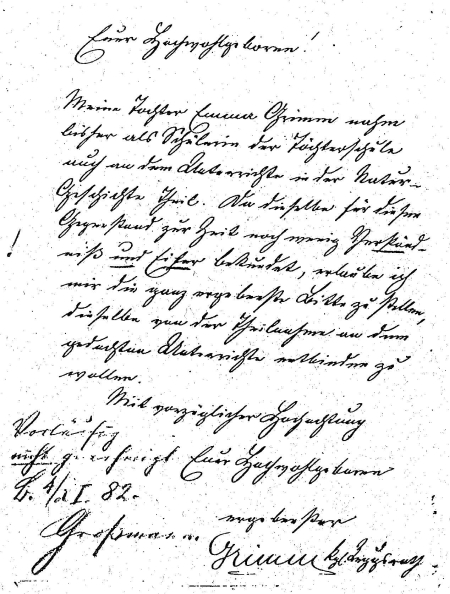 Euer Hochwohlgeboren!
Meine Tochter Emma Grimm nahm
bisher als Schülerin der Töchterschule
auch an dem Unterrichte in der Natur-
Geschichte Theil. Da dieselbe für diesen
Gegenstand zur Zeit noch wenig Verständ-
niß und Eifer bekundet, erlaube ich
mir die ganz ergebenste Bitte zu stellen,
dieselbe von der Theilnahme an dem
gedachten Unterrichte entbinden zu
wollen.
Mit vorzüglicher Hochachtung
Euer Hochwohlgeboren
ergebenster
Grimm kgl.
Vorläufig
nicht genehmigt.
B. 4/I. 82.
Großmann.